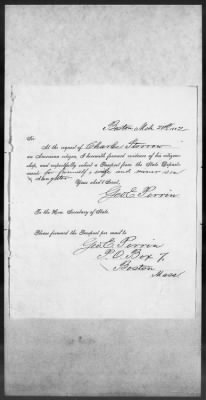 Boston Mch 28th 1872
Sir
At the request of Charles Storrow
an American citizen, I herewith forward evidence of his citizen-
ship, and respectfully solicit a Passport from the State Depart-
ment for himself, wife and minor son
& daughter
Your obd't Serv't,
Geo. E. Perrin
To the Hon. Secretary of State.
Please forward the Passport per mail to
Geo. E. Perrin
P.O. Box 7,
Boston
Mass